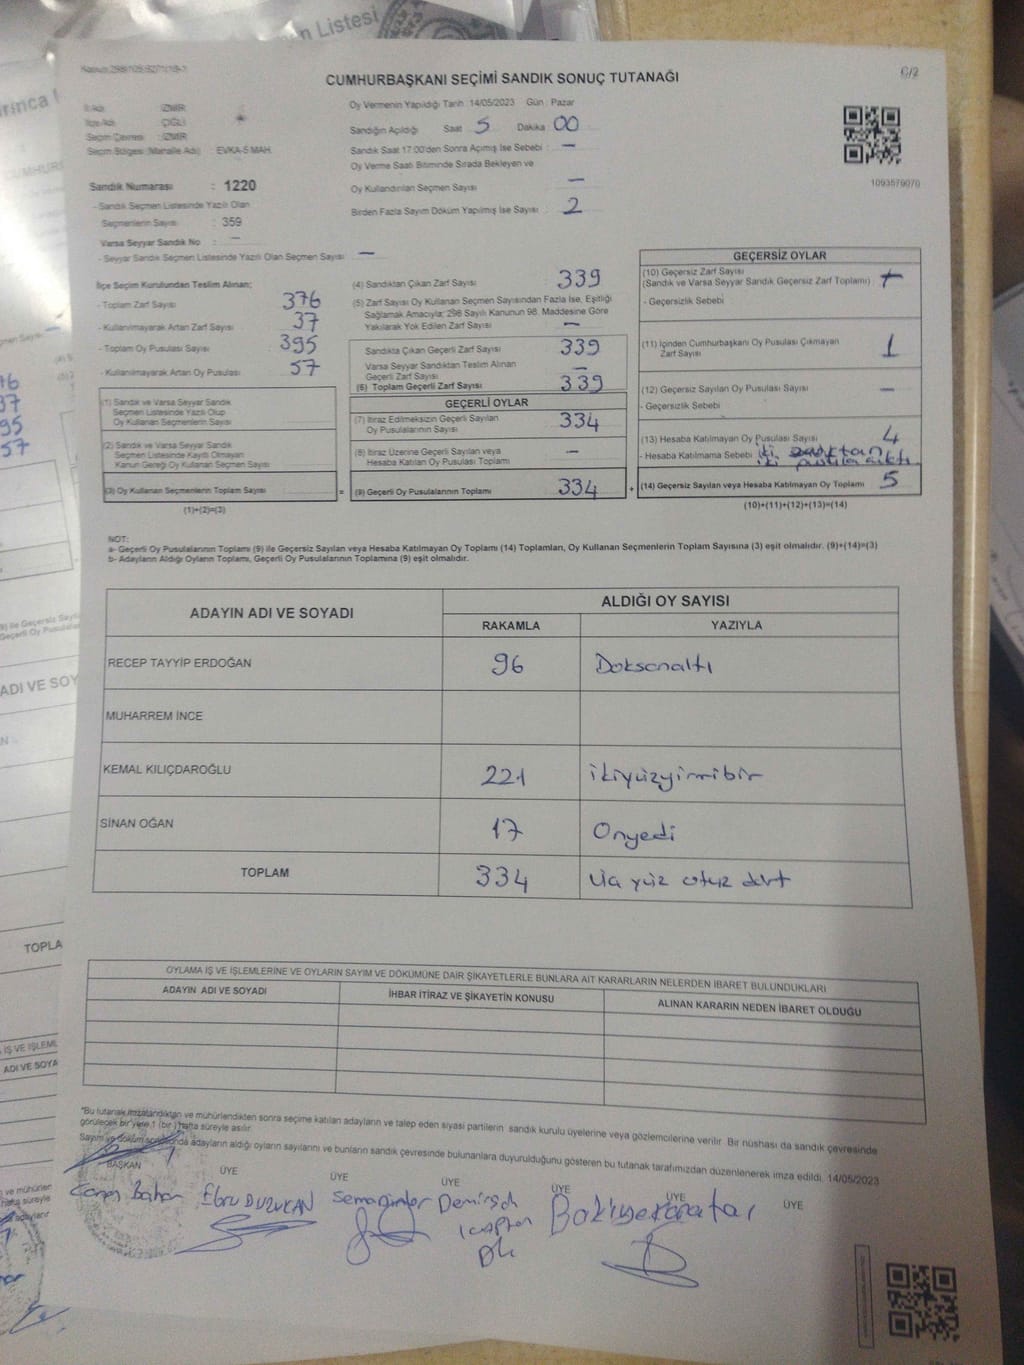 n Listesi
C/2
CUMHURBAŞKANI SEÇİMİ SANDIK SONUÇ TUTANAĞI
İl Adı : İZMİR
İlçe Adı : ÇİĞLİ
Seçim Çevresi : İZMİR
Seçim Bölgesi (Mahalle Adı) : EVKA-5 MAH.
Sandık Numarası : 1220
- Sandık Seçmen Listesinde Yazılı Olan
Seçmenlerin Sayısı : 359
Varsa Seyyar Sandık No : —
- Seyyar Sandık Seçmen Listesinde Yazılı Olan Seçmen Sayısı : —
Oy Vermenin Yapıldığı Tarih : 14/05/2023 Gün : Pazar
Sandığın Açıldığı Saat 5 Dakika : 00
Sandık Saat 17:00'den Sonra Açımış İse Sebebi : —
Oy Verme Saati Bitiminde Sırada Bekleyen ve
Oy Kullandırılan Seçmen Sayısı : —
Birden Fazla Sayım Döküm Yapılmış İse Sayısı : 2
1093579070
İlçe Seçim Kurulundan Teslim Alınan;
- Toplam Zarf Sayısı 376
- Kullanılmayarak Artan Zarf Sayısı 37
- Toplam Oy Pusulası Sayısı 395
- Kullanılmayarak Artan Oy Pusulası 57
(1) Sandık ve Varsa Seyyar Sandık
Seçmen Listesinde Yazılı Olup
Oy Kullanan Seçmenlerin Sayısı
(2) Sandık ve Varsa Seyyar Sandık
Seçmen Listesinde Kayıtlı Olmayan
Kanun Gereği Oy Kullanan Seçmen Sayısı
(3) Oy Kullanan Seçmenlerin Toplam Sayısı =
(1)+(2)=(3)
(4) Sandıktan Çıkan Zarf Sayısı 339
(5) Zarf Sayısı Oy Kullanan Seçmen Sayısından Fazla İse, Eşitliği
Sağlamak Amacıyla; 298 Sayılı Kanunun 98. Maddesine Göre
Yakılarak Yok Edilen Zarf Sayısı —
Sandıkta Çıkan Geçerli Zarf Sayısı 339
Varsa Seyyar Sandıktan Teslim Alınan
Geçerli Zarf Sayısı —
(6) Toplam Geçerli Zarf Sayısı 339
GEÇERLİ OYLAR
(7) İtiraz Edilmeksizin Geçerli Sayılan
Oy Pusulalarının Sayısı 334
(8) İtiraz Üzerine Geçerli Sayılan veya
Hesaba Katılan Oy Pusulası Toplamı —
(9) Geçerli Oy Pusulalarının Toplamı 334 +
GEÇERSİZ OYLAR
(10) Geçersiz Zarf Sayısı
(Sandık ve Varsa Seyyar Sandık Geçersiz Zarf Toplamı) :
- Geçersizlik Sebebi
(11) İçinden Cumhurbaşkanı Oy Pusulası Çıkmayan
Zarf Sayısı 1
(12) Geçersiz Sayılan Oy Pusulası Sayısı —
- Geçersizlik Sebebi
(13) Hesaba Katılmayan Oy Pusulası Sayısı 4
- Hesaba Katılmama Sebebi iki
iki pusula çıktı
(14) Geçersiz Sayılan veya Hesaba Katılmayan Oy Toplamı 5
(10)+(11)+(12)+(13)=(14)
NOT:
a- Geçerli Oy Pusulalarının Toplamı (9) ile Geçersiz Sayılan veya Hesaba Katılmayan Oy Toplamı (14) Toplamları, Oy Kullanan Seçmenlerin Toplam Sayısına (3) eşit olmalıdır. (9)+(14)=(3)
b- Adayların Aldığı Oyların Toplamı, Geçerli Oy Pusulalarının Toplamına (9) eşit olmalıdır.
ADAYIN ADI VE SOYADI ALDIĞI OY SAYISI
RAKAMLA YAZIYLA
RECEP TAYYİP ERDOĞAN 96 Doksanaltı
MUHARREM İNCE
KEMAL KILIÇDAROĞLU 221 ikiyüzyirmibir
SİNAN OĞAN 17 Onyedi
TOPLAM 334 Üç yüz otuz dört
OYLAMA İŞ VE İŞLEMLERİNE VE OYLARIN SAYIM VE DÖKÜMÜNE DAİR ŞİKAYETLERLE BUNLARA AİT KARARLARIN NELERDEN İBARET BULUNDUKLARI
ADAYIN ADI VE SOYADI İHBAR İTİRAZ VE ŞİKAYETİN KONUSU ALINAN KARARIN NEDEN İBARET OLDUĞU
*Bu tutanak imzalandıktan ve mühürlendikten sonra seçime katılan adayların ve talep eden siyasi partilerin sandık kurulu üyelerine veya gözlemcilerine verilir. Bir nüshası da sandık çevresinde
görülecek bir yere 1 (bir) hafta süreyle asılır.
Sayım ve döküm sonunda adayların aldığı oyların sayılarını ve bunların sandık çevresinde bulunanlara duyurulduğunu gösteren bu tutanak tarafımızdan düzenlenerek imza edildi. 14/05/2023
BAŞKAN ÜYE ÜYE ÜYE ÜYE ÜYE ÜYE
Ebru DUZUKAN